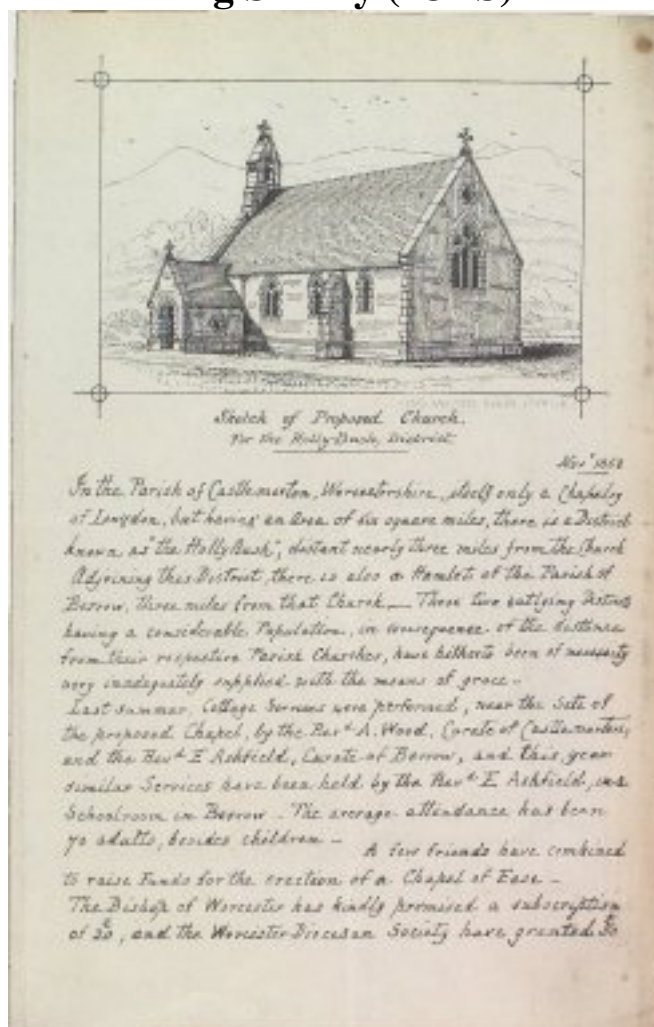 Sketch of Proposed Church.
For the Holly-Bush, District
Novr 1858
In the Parish of Castlemorton, Worcestershire, itself only a Chapelry
of Longdon, but having an area of six square miles, there is a District
known as "the Holly Bush", distant nearly three miles from the Church
Adjoining this District, there is also a Hamlet of the Parish of
Berrow, three miles from that Church — These two outlying Districts
having a considerable Population, in consequence of the distance
from their respective Parish Churches, have hitherto been of necessity
very inadequately supplied with the means of grace –
Last summer, Cottage Services were performed, near the Site of
the proposed Chapel, by the Revd A. Wood, Curate of Castlemorton,
and the Revd E Ashfield, Curate of Berrow, and this year
similar Services have been held by the Revd E Ashfield, in a
Schoolroom in Berrow – The average attendance has been
70 adults, besides children –
A few friends have combined
to raise Funds for the erection of a Chapel of Ease –
The Bishop of Worcester has kindly promised a subscription
of and the Worcester Diocesan Society have granted